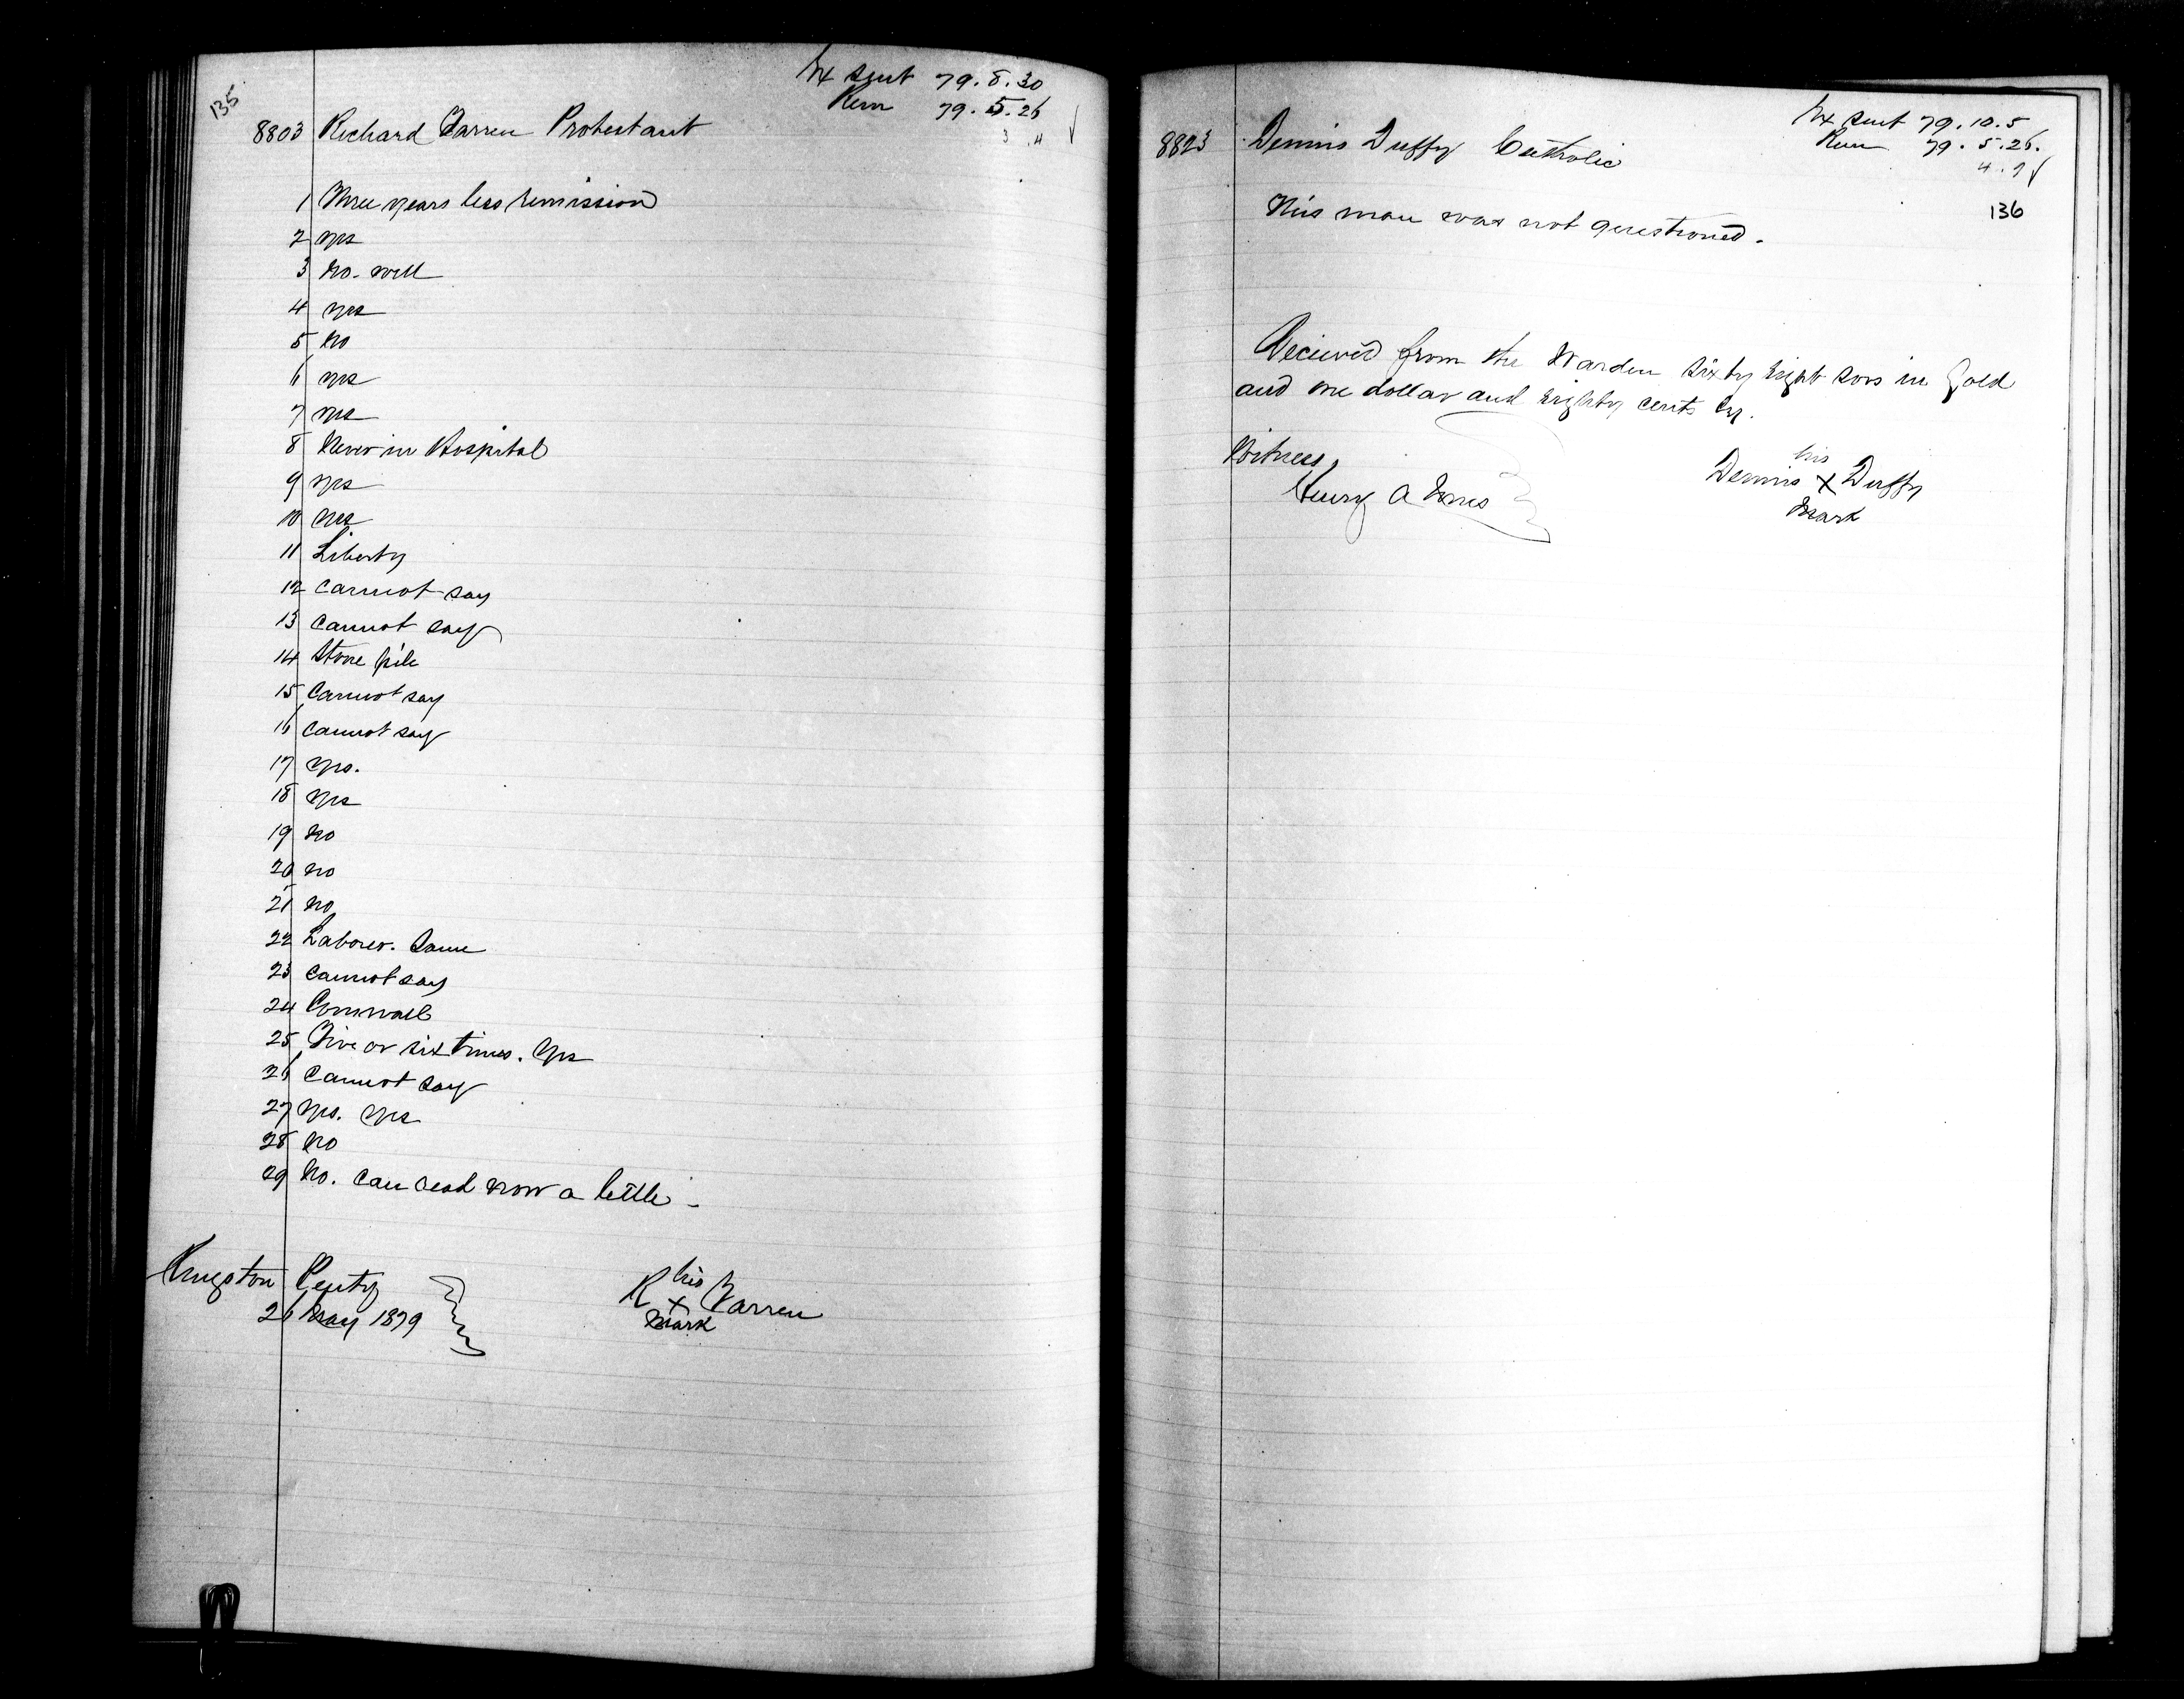 135
Ex sent 79.8.30
Rem 79.5.26
3.4
8803 Richard Farren Protestant
1 Three years less remission
2 yes
3 No. well
4 yes
5 No
6 yes
7 yes
8 Never in Hospital
9 yes
10 yes
11 Liberty
12 Cannot say
13 Cannot say
14 Stone pile
15 Cannot say
16 Cannot say
17 yes.
18 yes
19 No
20 no
21 No
22 Laborer. Same
23 Cannot say
24 Cornwall
25 Five or six times. Yes
26 Cannot say
27 yes. yes
28 No
29 No. Can read now a little
Kingston Penty
26 May 1879
his
R x Farren
Mark
Ex sent 79.10.5
Rem 79.5.26.
4.9
136
8823 Dennis Duffy Catholic
This man was not questioned.
Received from the Warden Sixty Eight sovs in Gold
and one dollar and Eighty cents Cy.
Witness,
Henry A
his
Dennis x Duffy
Mark